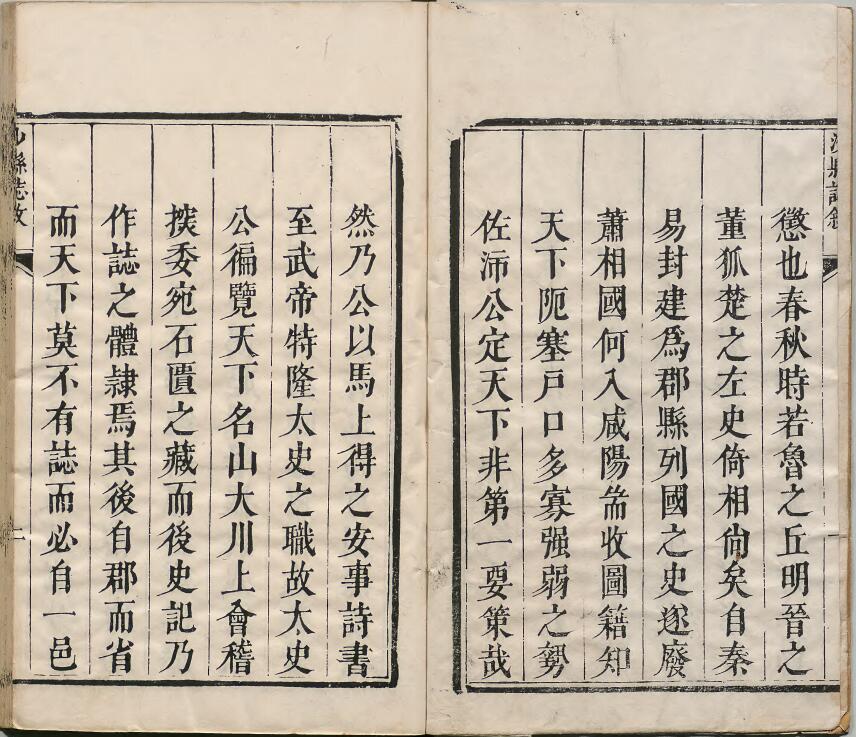 懲也春秋時若魯之丘明晉之
董狐楚之左史倚相尙矣自秦
易封建爲郡縣列國之史遂廢
蕭相國何入咸陽耑收圖籍知
天下阨塞戸口多寡强弱之勢
佐沛公定天下非第一要策哉
然乃公以馬上得之安事詩書
至武帝特隆太史之職故太史
公徧覽天下名山大川上會稽
探委宛石匱之藏而後史記乃
作誌之體隸焉其後自郡而省
而天下莫不有誌而必自一邑
縣誌
二